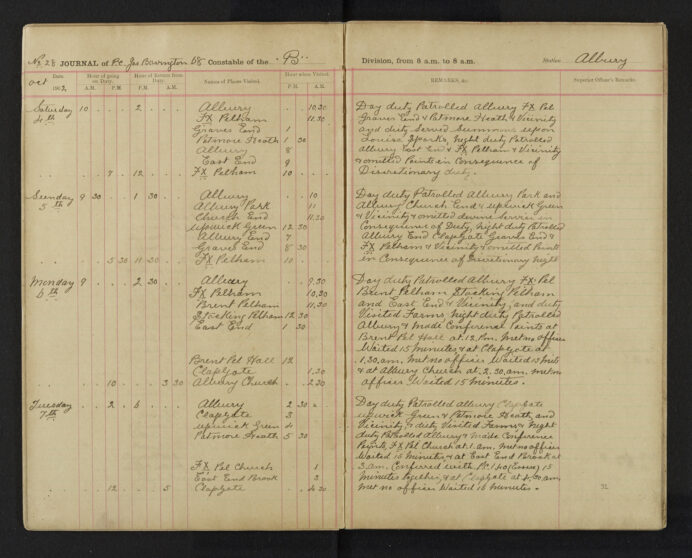 No 28 JOURNAL of P.C. Jas Barrington 68 Constable of the "B"
Date. Hour of going on Duty. Hour of Return from Duty. Names of Places Visited. Hour when Visited.
Oct 1902, A.M. P.M. P.M. A.M. P.M. A.M.
Saturday 10 2 Albury 10 30
4th Fx Pelham 11.30
Graves End 1
Patmore Heath 1 30
Albury 8
East End 9
7 12 Fx Pelham 10
Sunday 9 30 1 30 Albury 10
5th Albury Park 11
Church End 11.30
Upwick Green 12 30
Albury End 7
Graves End 8 30
5 30 11 30 Fx Pelham 10
Monday 9 2 30 Albury 9.30
6th Fx Pelham 10.30
Brent Pelham 11.30
Stocking Pelham 12 30
East End 1 30
Brent Pel Hall 12
Clapgate 1.30
10 3 30 Albury Church 2.30
Tuesday 2 6 Albury 2 30
7th Clapgate 3
Upwick Green 4
Patmore Heath 5 30
Fx Pel Church 1
East End Brook 3
12 5 Clapgate 4 30
Division, from 6 a.m. to 6 a.m. Station Albury
REMARKS, &c. Superior Officer's Remarks.
Day duty Patrolled Albury Fx Pel
Graves End & Patmore Heath & Vicinity
and duty Served Summons upon
Louisa Sparks, Night duty Patrolled
Albury East End & Fx Pelham & Vicinity
& omitted Points in Consequence of
Discretionary duty.
Day duty Patrolled Albury Park and
Albury Church End & Upwick Green
& Vicinity & omitted devine Service in
Consequence of Duty, Night duty Patrolled
Albury End Clapgate Graves End &
Fx Pelham & Vicinity & omitted Points
in Consequence of
Day duty Patrolled Albury Fx Pel
Brent Pelham Stocking Pelham
and East End & Vicinity, and duty
Visited Farms, Night duty Patrolled
Albury & made Conference Points at
Brent Pel Hall at 12. P.m. Met no officer
Waited 15 minutes & at Clapgate at
1.30.a.m. met no officer Waited 15 mts
& at Albury Church at 2.30.a.m. met no
officer Waited 15 minutes.
Day duty Patrolled Albury Clapgate
Upwick Green & Patmore Heath, and
Vicinity & duty Visited Farms, & Night
duty Patrolled Albury & made Conference
Points, Fx Pel Church at 1.a.m. met no officer
Waited 15 minutes, & at East End Brook at
3 a.m. Confered with P.C. 140 (Essex) 15
minutes together, & at Clapgate at 4.30.a.m.
met no officer Waited 15 minutes.